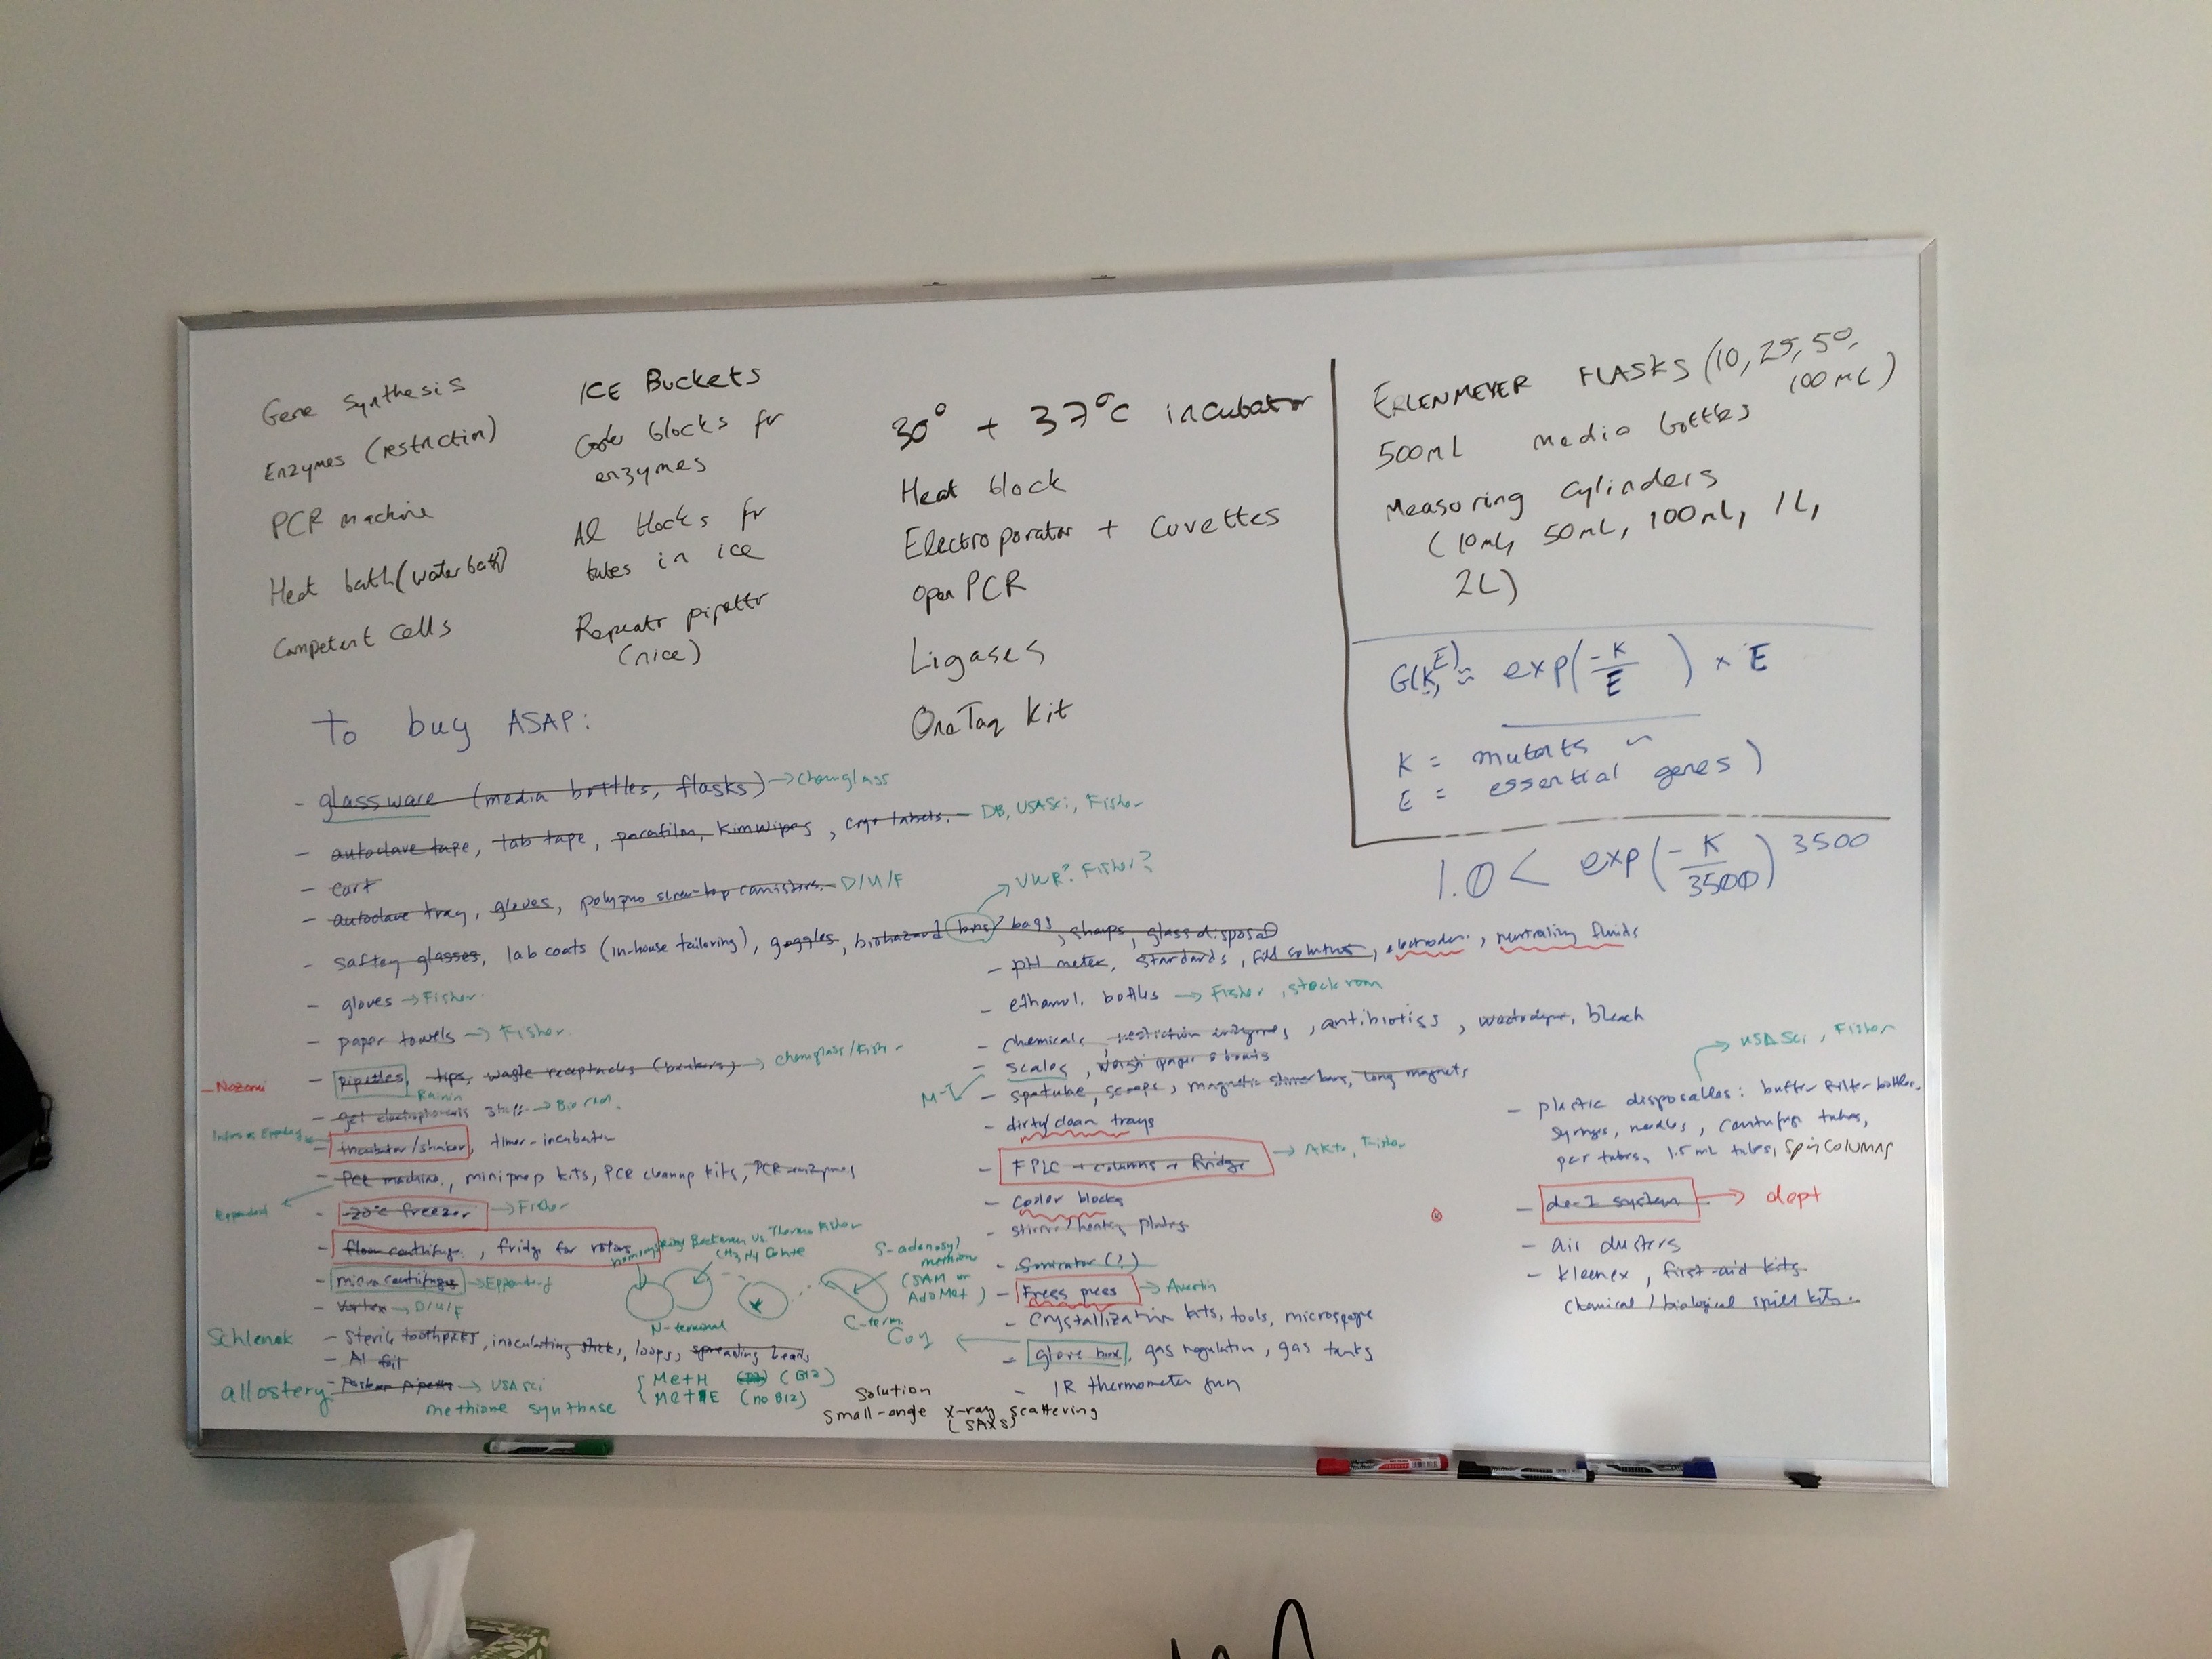 Gene Synthesis
Enzymes (restriction)
PCR machine
Heat bath (water bath)
Competent cells
ICE Buckets
Cooler blocks for
enzymes
Al blocks for
tubes in ice
Repeatr pipettr
(nice)
30° + 37°C incubator
Heat block
Electroporator + Cuvettes
Open PCR
Ligases
OneTaq Kit
ERLENMEYER FLASKS (10, 25, 50,
100 mL)
500mL media bottles
Measuring cylinders
(10mL, 50mL, 100mL, 1L,
2L)
G(K, E) ≈ exp(-K/E) × E
K = mutants ~
E = essential genes)
1.0 < exp(-K/3500) 3500
To buy ASAP:
- glassware (media bottles, flasks) → chemglass
- autoclave tape, lab tape, parafilm, kimwipes, cryo labels. — DB, USASci, Fisher
- cart
- autoclave tray, gloves, polypro screw-top canisters. — D/U/F
- saftey glasses, lab coats (in-house tailoring), goggles, biohazard bins/bags, sharps, glass disposal
VWR? Fisher?
- gloves → Fisher.
- paper towels → Fisher.
- Nozomi
- pipettes, tips, waste receptacles (beakers) → chemglass/Fisher
Rainin
- gel electrophoresis stuff → Bio rad.
- incubator/shaker, timer-incubator
- PCR machine, miniprep kits, PCR cleanup kits, PCR enzymes
Eppendorf
- -20°C freezer → Fisher
- floor centrifuge, fridge for rotors
Beckman vs. Thermo Fisher
- micro centrifuges → Eppendorf
- Vortex → D/U/F
Schlenck
- Steric toothpicks, inoculating sticks, loops, spreading beads
- Al foil
- Pasteur Pipettes → USA Sci
allostery
methione synthase
MetH (B12)
MetE (no B12)
N-terminal
C-term
S-adenosyl
methion
(SAM or
AdoMet)
Solution
small-angle x-ray scattering
(SAXS)
- pH meter, standards, fill solution, electrodes, neutralizing fluids
- ethanol, bottles → Fisher, stockroom
- chemicals, restriction enzymes, antibiotics, bleach
- scales, weigh paper & boats
M-T
- spatula, scoops, magnetic stirrer bars, long magnets
- dirty/clean trays
- FPLC + columns + fridge → AKTA, Fisher
- cooler blocks
- stirrer/heating plates
- Sonicator (?)
- Freeze press → Avestin
- Crystallization kits, tools, microscope
- glove box, gas regulation, gas tanks
Coy
- IR thermometer gun
USA Sci, Fisher
- plastic disposables: buffer filter bottles,
syringes, needles, centrifuge tubes,
pcr tubes, 1.5 mL tubes, Spin COLUMNS
- de-I system → dept
- air dusters
- kleenex, first-aid kits
chemical/biological spill kits.